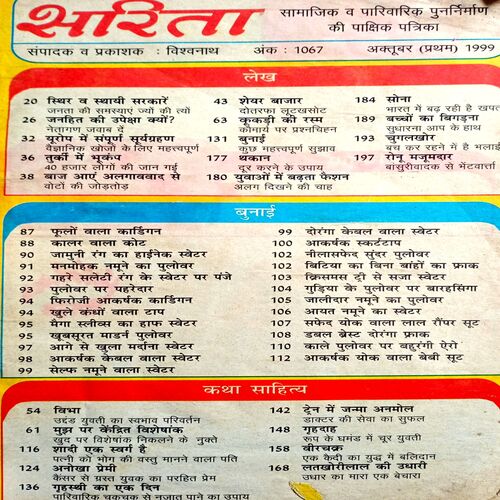 सरिता
सामाजिक व पारिवारिक पुनर्निर्माण
की पाक्षिक पत्रिका
संपादक व प्रकाशक : विश्वनाथ अंक : 1067 अक्तूबर (प्रथम) 1999
लेख
20 स्थिर व स्थायी सरकारें
जनता की समस्याएं ज्यों की त्यों
26 जनहित की उपेक्षा क्यों?
नेतागण जवाब दें
32 यूरोप में संपूर्ण सूर्यग्रहण
वैज्ञानिक खोजों के लिए महत्त्वपूर्ण
36 तुर्की में भूकंप
40 हजार लोगों की जान गई
38 बाज आएं अलगाववाद से
वोटों की जोड़तोड़
43 शेयर बाजार
दोतरफा लूटखसोट
63 कूकड़ी की रस्म
कौमार्य पर प्रश्नचिह्न
131 बुनाई
कुछ महत्त्वपूर्ण सुझाव
177 थकान
दूर करने के उपाय
180 युवाओं में बढ़ता फैशन
अलग दिखने की चाह
184 सोना
भारत में बढ़ रही है खपत
189 बच्चों का बिगड़ना
सुधारना आप के हाथ
193 चुगलखोर
बच कर रहने में है भलाई
197 रोनू मजूमदार
बांसुरीवादक से भेंटवार्त्ता
बुनाई
87 फूलों वाला कार्डिगन
88 कालर वाला कोट
90 जामुनी रंग का हाईनेक स्वेटर
91 मनमोहक नमूने का पुलोवर
92 गहरे सलेटी रंग के स्वेटर पर पंजे
93 पुलोवर पर पहरेदार
94 फिरोजी आकर्षक कार्डिगन
94 खुले कंधों वाला टाप
95 मैगा स्लीव्स का हाफ स्वेटर
95 खूबसूरत माडर्न पुलोवर
97 आगे से खुला मर्दाना स्वेटर
98 आकर्षक केबल वाला स्वेटर
99 सेल्फ नमूने वाला स्वेटर
99 दोरंगा केबल वाला स्वेटर
100 आकर्षक स्कर्टटाप
102 नीलासफेद सुंदर पुलोवर
102 बिटिया का बिना बांहों का फ्राक
103 क्रिसमस ट्री से सजा स्वेटर
104 गुड़िया के पुलोवर पर बारहसिंगा
105 जालीदार नमूने का पुलोवर
106 आयत नमूने का स्वेटर
107 सफेद योक वाला लाल रौंपर सूट
108 डबल ब्रेस्ट दोरंगा फ्राक
110 काले पुलोवर पर बहुरंगी ऐरो
112 आकर्षक योक वाला बेबी सूट
कथा साहित्य
54 विभा
उद्दंड युवती का स्वभाव परिवर्तन
61 मुझ पर केंद्रित विशेषांक
खुद पर विशेषांक निकलने के नुक्ते
116 शादी एक स्वर्ग है
पत्नी को भोग की वस्तु मानने वाला पति
124 अनोखा प्रेमी
कैंसर से ग्रस्त युवक का परहित प्रेम
136 गृहस्थी का एक दिन
पारिवारिक चकचक से नजात पाने का उपाय
142 ट्रेन में जन्मा अनमोल
डाक्टर की सेवा का सुफल
148 गृहदाह
रूप के घमंड में चूर युवती
158 वीरचक्र
एक कैदी का युद्ध में बलिदान
168 लतखोरीलाल की उधारी
उधार का मारा एक बेचारा